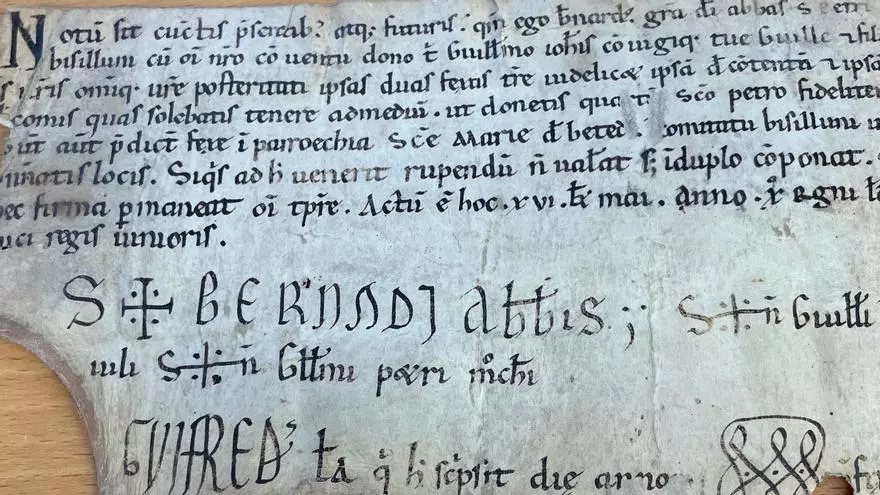 Notũ sit cũctis p̃sentib; atq; futuris. qm̃ ego b̃nard; gr̃a dĩ abbas S̃
bisillum cũ oĩ nr̃o cõventu dono t̃ Guill̃mo ioh̃is cõiugiq; tue Guille ⁊ fil
s omniq; ur̃e posteritati ipsas duas fexas t̃re uidelicæ ipsã đ cõtentã ⁊ ipsã
comis quas solebatis tenere admediũ. ut donetis qua t̃ sc̃o petro fideliter
aut̃ p̃dict̃ fexe ĩ parroechia sc̃e Marie đ beted. comitatu bisilluni
ratis locis. Siq̃s ad h̃ uenerit rupendũ ñ ualeat s; ĩduplo cõponat.
ec firma p̃maneat oĩ tp̃re. Actũ ẽ hoc. xvi. kł mai. anno. x̊ regni
uci regis iunioris.
S✝ BERNADI Abb̃is ; S✝ñ Guill̃i
iuli S✝ñ Gll̃mi pætri mõchi
GUIFRED' l̃ta q̃ h̃ sc̃psit die anno